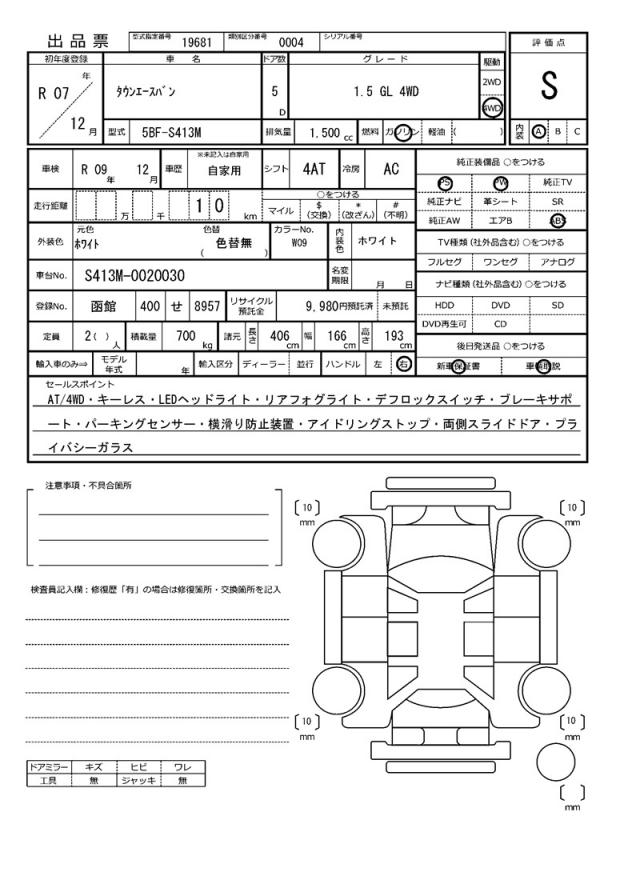 出品票 型式指定番号 19681 類別区分番号 0004 シリアル番号
評価点
S
内装 A B C
初年度登録 車名 ドア数 グレード 駆動
R 07 年 12 月 タウンエースバン 5 D 1.5 GL 4WD 2WD 4WD
型式 5BF-S413M 排気量 1.500 cc 燃料 ガソリン 軽油 ( )
車検 R 09 年 12 月 車歴 ※未記入は自家用 自家用 シフト 4AT 冷房 AC
走行距離 万 千 1 0 km ○をつける マイル $ (交換) * (改ざん) # (不明)
外装色 元色 ホワイト 色替 ( 色替無 ) カラーNo. W09 内装色 ホワイト
車台No. S413M-0020030 名変期限 月 日
登録No. 函館 400 せ 8957 リサイクル預託金 9,980円預託済 未預託
定員 2( ) 人 積載量 700 kg 諸元 長さ 406 cm 幅 166 cm 高さ 193 cm
輸入車のみ⇒ モデル年式 年 輸入区分 ディーラー 並行 ハンドル 左 右
純正装備品 ○をつける
PS PW 純正TV
純正ナビ 革シート SR
純正AW エアB ABS
TV種類 (社外品含む) ○をつける
フルセグ ワンセグ アナログ
ナビ種類 (社外品含む) ○をつける
HDD DVD SD
DVD再生可 CD
後日発送品 ○をつける
新車保証書 車輌取説
セールスポイント
AT/4WD・キーレス・LEDヘッドライト・リアフォグライト・デフロックスイッチ・ブレーキサポ
ート・パーキングセンサー・横滑り防止装置・アイドリングストップ・両側スライドドア・プラ
イバシーガラス
注意事項・不具合箇所
検査員記入欄：修復歴「有」の場合は修復箇所・交換箇所を記入
ドアミラー キズ ヒビ ワレ
工具 無 ジャッキ 無
〔 10 〕 mm
〔 10 〕 mm
〔 10 〕 mm
〔 10 〕 mm
〔 〕 mm